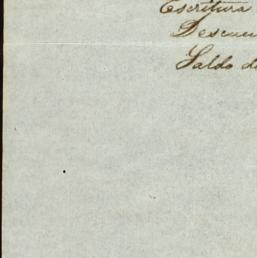 Escritura
Descu
Saldo d